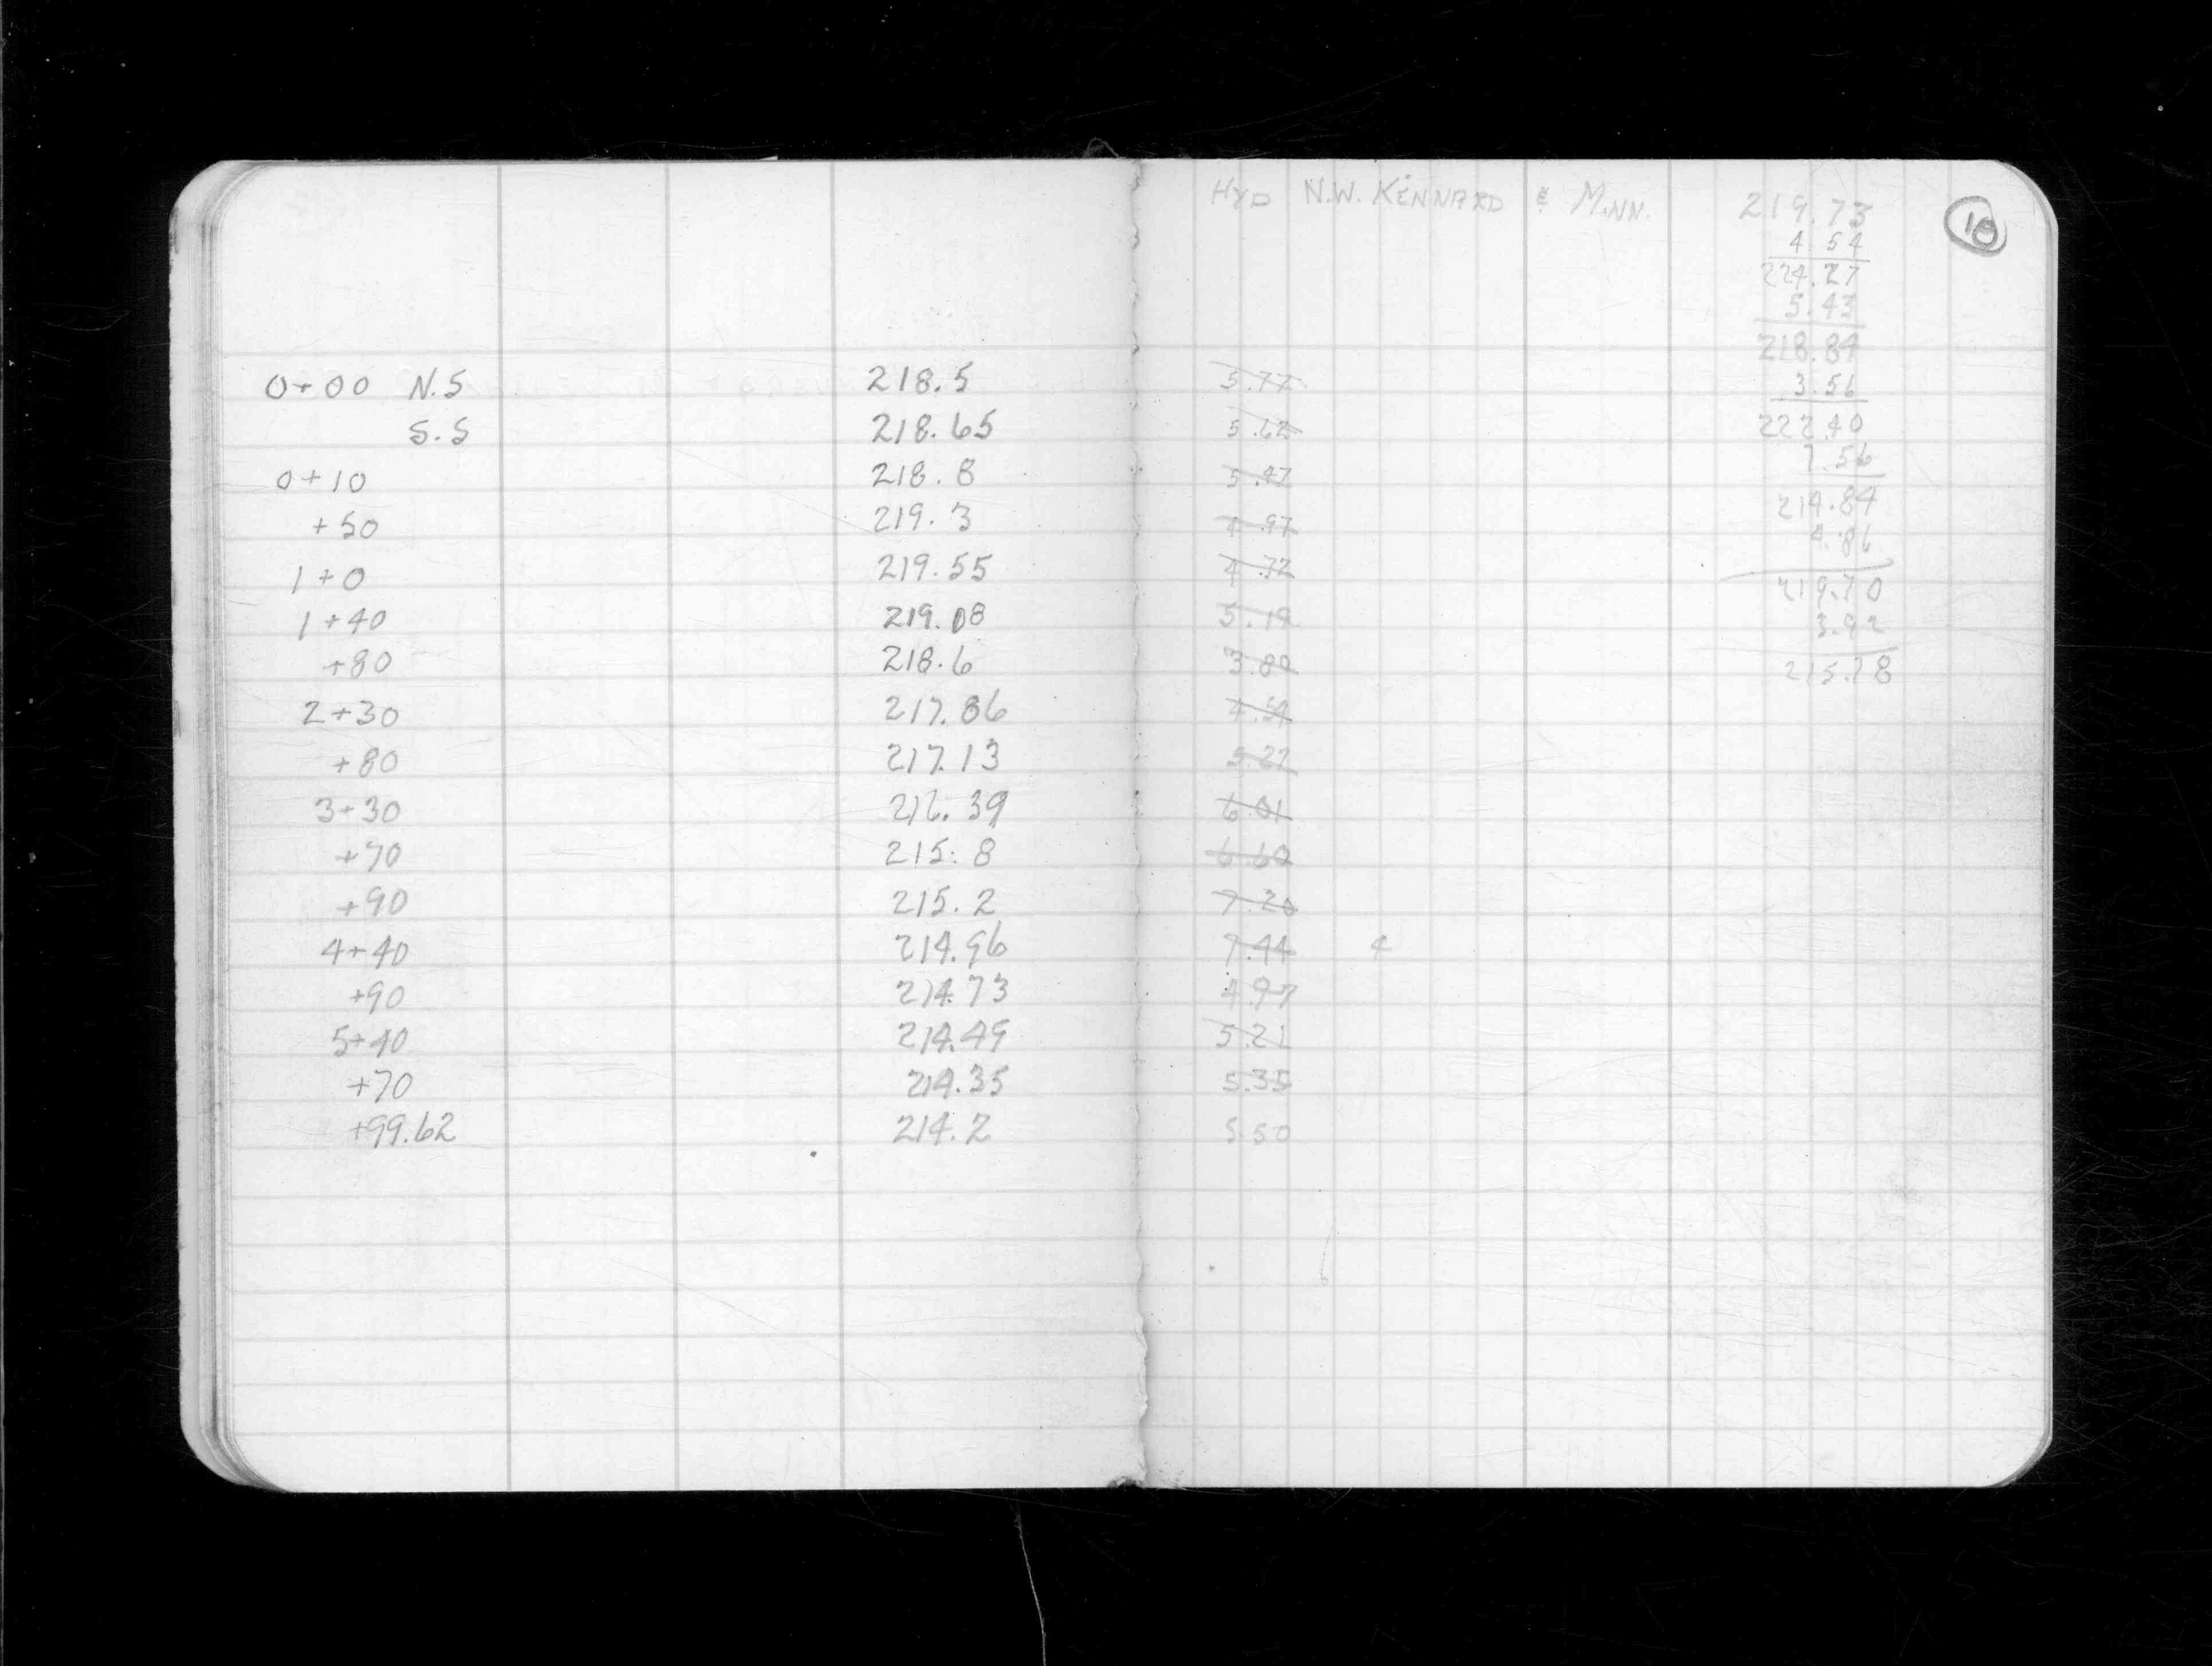 HYD N.W. KENNARD & MINN. 219.73 10
4.54
224.27
5.43
218.84
3.56
222.40
7.56
214.84
4.86
219.70
3.92
215.78
0+00 N.S 218.5 5.77
S.S 218.65 5.62
0+10 218.8 5.47
+50 219.3 4.97
1+0 219.55 4.72
1+40 219.08 5.19
+80 218.6 3.80
2+30 217.86 4.54
+80 217.13 5.27
3+30 216.39 6.01
+70 215.8 6.60
+90 215.2 7.20
4+40 214.96 7.44
+90 214.73 4.97
5+40 214.49 5.21
+70 214.35 5.35
+99.62 214.2 5.50